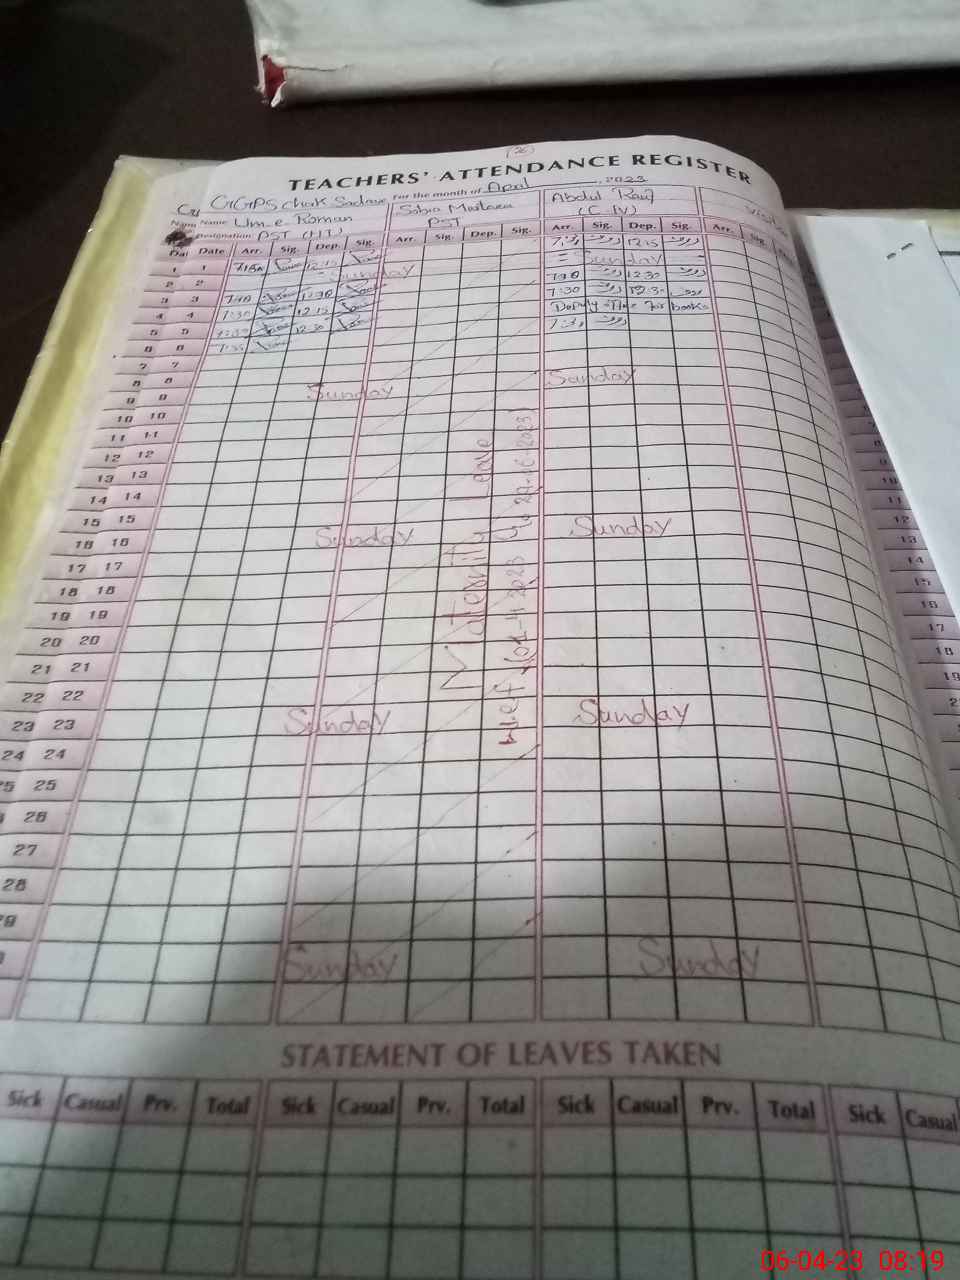 (26)
TEACHERS' ATTENDANCE REGISTER
GGPS chak Sadave For the month of April 2023
Name Um-e-Roman Sobia Mushtaq Abdul Rauf
Designation PST (HT) PST (C-IV)
Date Arr. Sig. Dep. Sig. Arr. Sig. Dep. Sig. Arr. Sig. Dep. Sig. Arr. Sig.
1 1 12:15 7:30 رؤف 12:15 رؤف
2 2 = Sunday = Sunday
3 3 7:30 12:30 7:30 رؤف 12:30 رؤف
4 4 7:30 12:15 7:30 رؤف 12:30 رؤف
5 5 7:30 12:30 Deputy
6 6 7:35 7:30 رؤف
7 7
8 8
9 9 Sunday Sunday
10 10
11 11
12 12
13 13
14 14
15 15
16 16 Sunday Sunday
17 17
18 18
19 19
20 20
21 21
22 22
23 23 Sunday Sunday
24 24
25 25
26
27
28
29
Sunday Sunday
Maternity Leave
w.e.f (01-4-2023 to
STATEMENT OF LEAVES TAKEN
Sick Casual Prv. Total Sick Casual Prv. Total Sick Casual Prv. Total Sick Casual
10
11
12
13
14
15
16
17
18
19
06-04-23 08:19